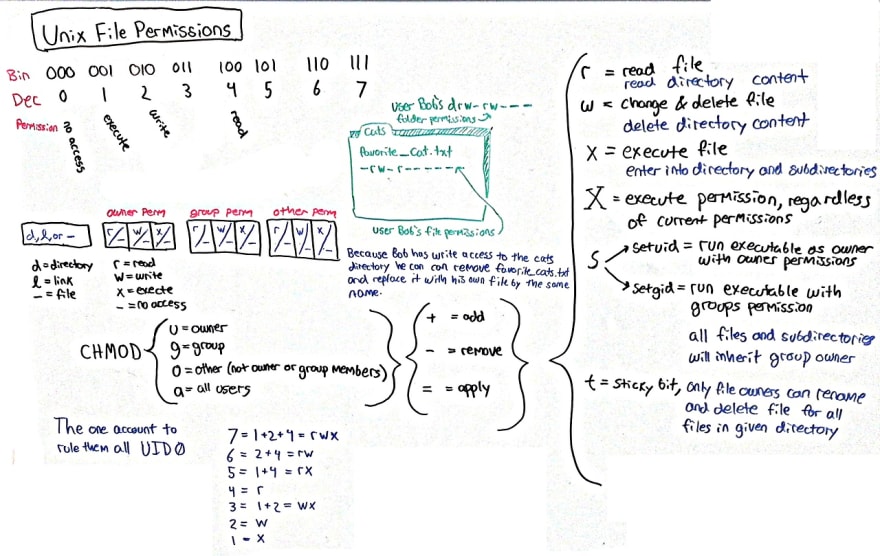 Unix File Permissions
Bin 000 001 010 011 100 101 110 111
Dec 0 1 2 3 4 5 6 7
Permission no access execute write read
user Bob's drw-rw---
folder permissions
Cats
favorite_cat.txt
-rw-r------
user Bob's file permissions
Because Bob has write access to the cats
directory he can can remove favorite_cats.txt
and replace it with his own file by the same
name.
owner perm group perm other perm
d,l,or - r/- w/- x/- r/- w/- x/- r/- w/- x/-
d=directory
l=link
-=file
r=read
w=write
x=execte
-=no access
CHMOD
u=owner
g=group
o=other (not owner or group members)
a=all users
+ = add
- = remove
= = apply
r = read file
read directory content
w = change & delete file
delete directory content
x = execute file
enter into directory and subdirectories
X = execute permission, regardless
of current permissions
s
setuid = run executable as owner
with owner permissions
setgid = run executable with
groups permission
all files and subdirectories
will inherit group owner
t = sticky bit, only file owners can rename
and delete file for all
files in given directory
The one account to
rule them all UID0
7=1+2+4=rwx
6=2+4=rw
5=1+4=rx
4=r
3=1+2=wx
2=w
1-x